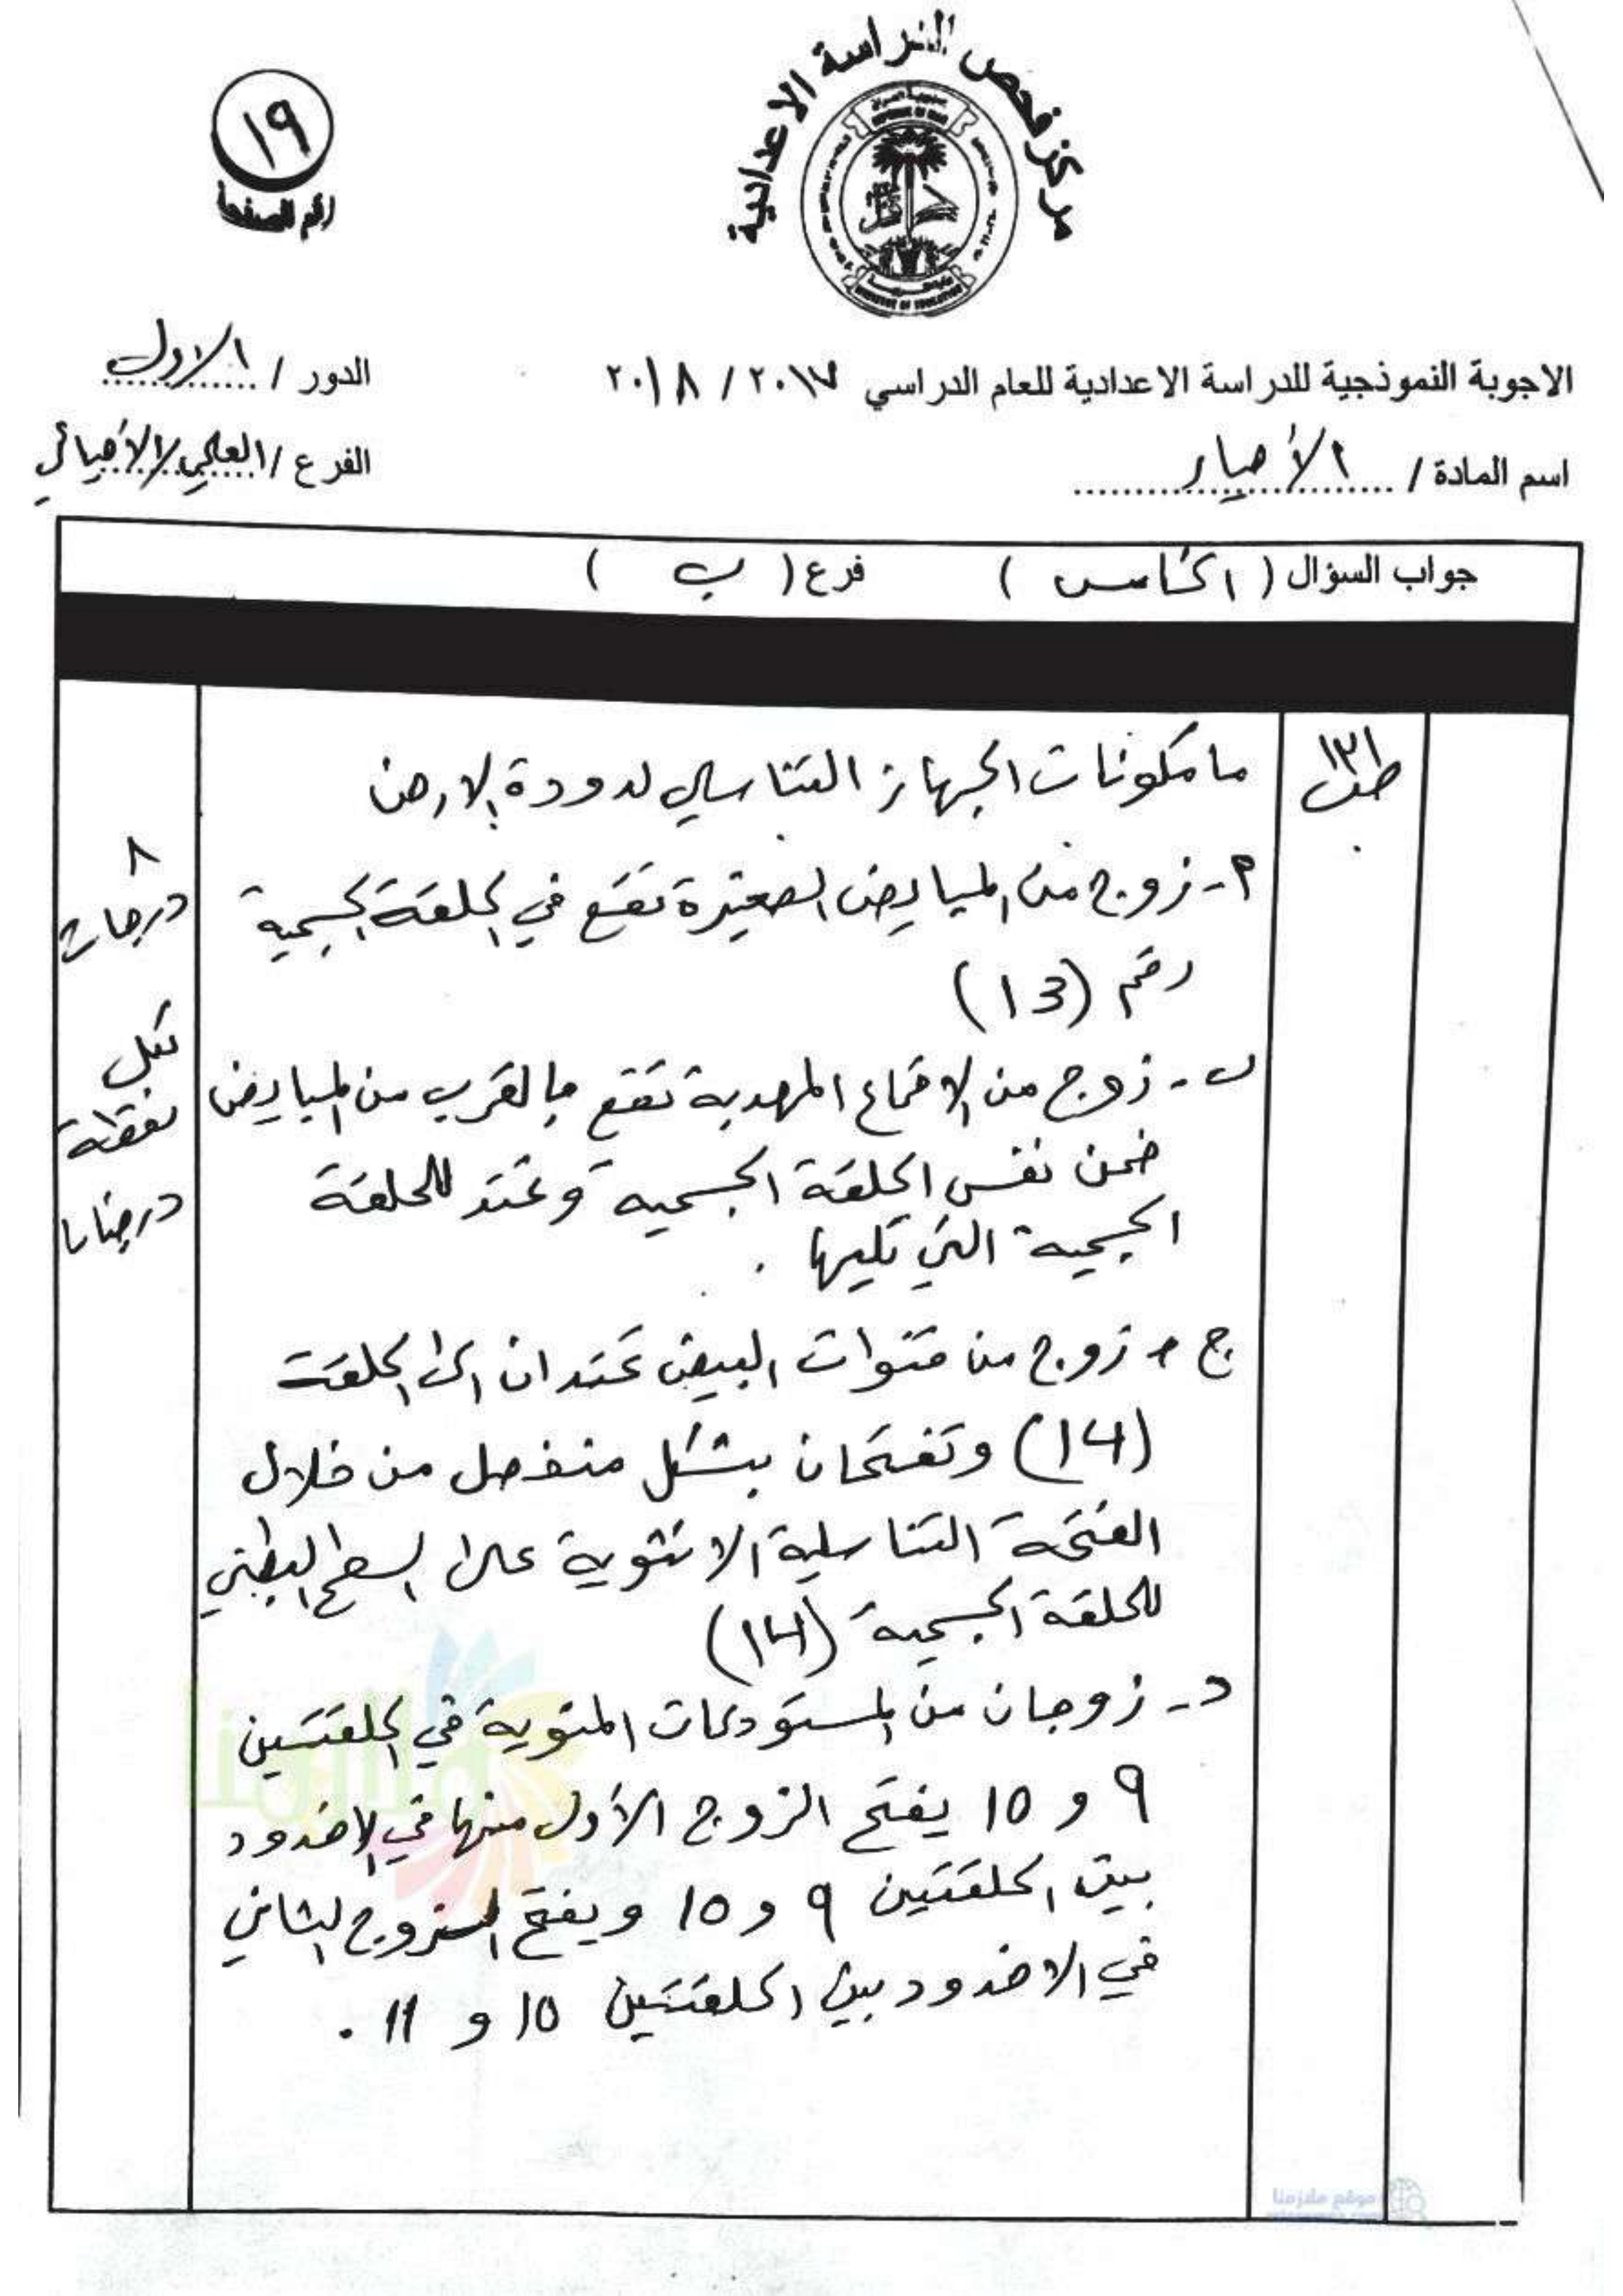 مركز فحص الدراسة الاعدادية
١٩
رقم الصفحة
الاجوبة النموذجية للدراسة الاعدادية للعام الدراسي ٢٠١٧ / ٢٠١٨
الدور / الاول
اسم المادة / الأحياء
الفرع / العلمي/الأحيائي
جواب السؤال ( الخامس ) فرع ( ب )
ما مكونات الجهاز التناسلي لدودة الارض
ص١٣١
٨
درجات
لكل
نقطة
درجتان
أ- زوج من المبايض الصغيرة تقع في الحلقة الجسمية
رقم (13)
ب- زوج من الاقماع المهدبة تقع بالقرب من المبايض
ضمن نفس الحلقة الجسمية وتمتد للحلقة
الجسمية التي تليها .
ج- زوج من قنوات البيض تمتدان الى الحلقة
(14) وتفتحان بشكل منفصل من خلال
الفتحة التناسلية الانثوية على السطح البطني
للحلقة الجسمية (14)
د- زوجان من المستودعات المنوية في الحلقتين
9 و 10 يفتح الزوج الأول منها في الاخدود
بين الحلقتين 9 و 10 ويفتح الزوج الثاني
في الاخدود بين الحلقتين 10 و 11 .
موقع ملازمنا